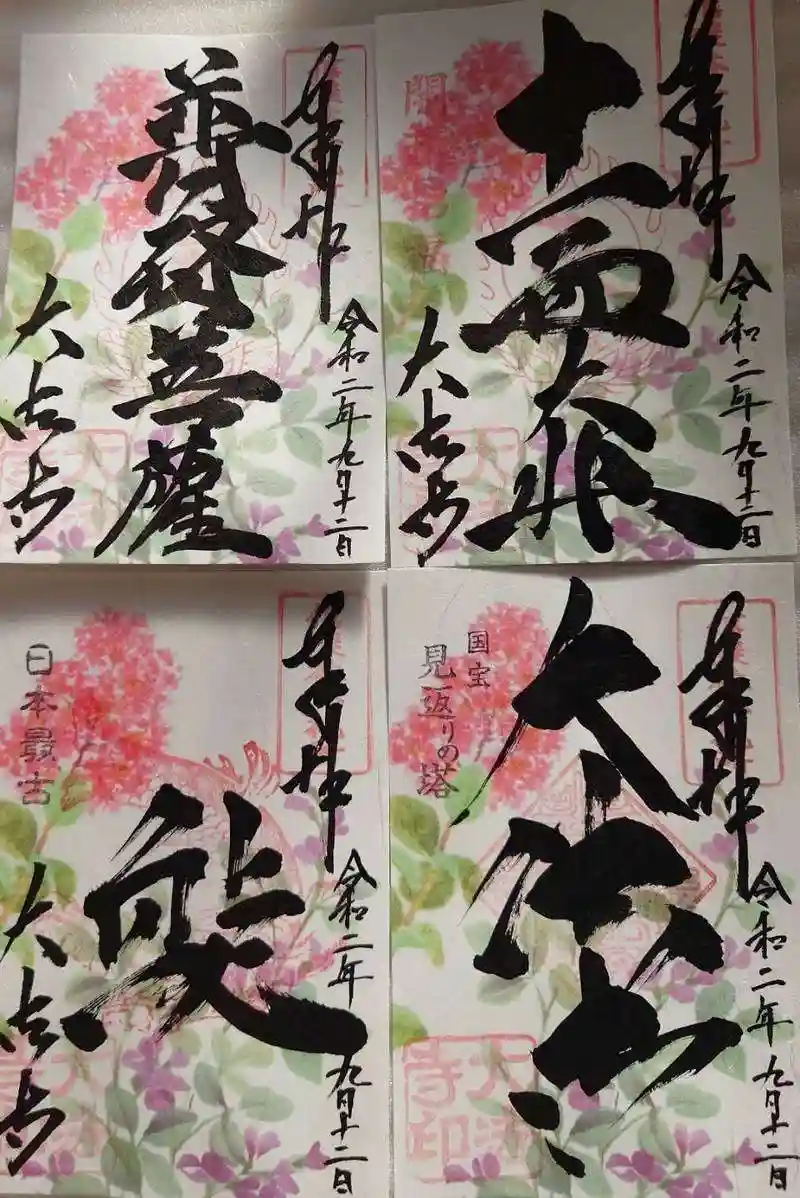 奉拝
令和二年九月十二日
普賢菩薩
大法寺
奉拝
令和二年九月十二日
十一面大悲
開
大法寺
奉拝
令和二年九月十二日
日本最古
大法寺
奉拝
令和二年九月十二日
大法寺
国宝
見返りの塔
大法寺印